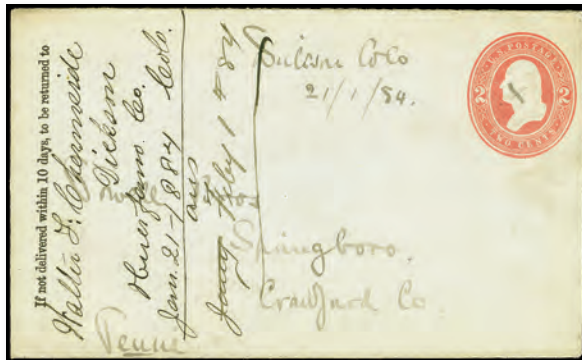 If not delivered within 10 days, to be returned to
Walter F. Chermside
Dickson
Huerfano. Co.
Jan. 21-1884 Colo.
ans
Jany Feby 1st 84
Colo
21/1/84.
U.S. POSTAGE
2 2
TWO CENTS
Bros
Springboro.
Crawford Co.
Penne